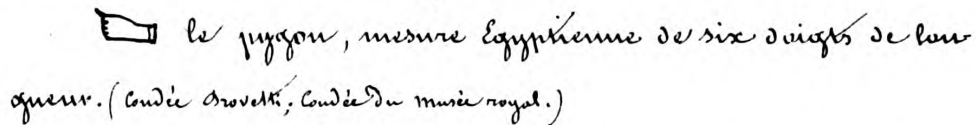 le pygon, mesure Égyptienne de six doigts de lon
gueur. (Coudée Drovetti; Coudée du musée royal.)